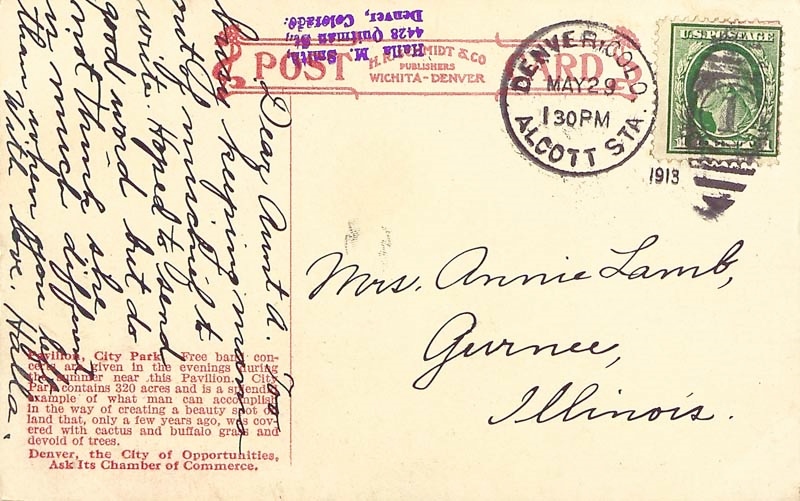 Halla M. Smith,
4428 Quitman St.,
Denver, Colorado.
POST CARD
H. R. SCHMIDT & CO
PUBLISHERS
WICHITA-DENVER
DENVER, COLO.
MAY 29
1 30 PM
ALCOTT STA.
1913
U.S. POSTAGE
1
Dear Aunt A. Too
busy keeping mama
notify musicnest to
write. Hoped to send
good word but do
not think she
is much different
than when you left.
With love Halla.
Mrs. Annie Lamb,
Gurnee,
Illinois.
Pavilion, City Park. Free band con-
certs are given in the evenings during
the summer near this Pavilion. City
Park contains 320 acres and is a splendid
example of what man can accomplish
in the way of creating a beauty spot of
land that, only a few years ago, was cov-
ered with cactus and buffalo grass and
devoid of trees.
Denver, the City of Opportunities,
Ask Its Chamber of Commerce.